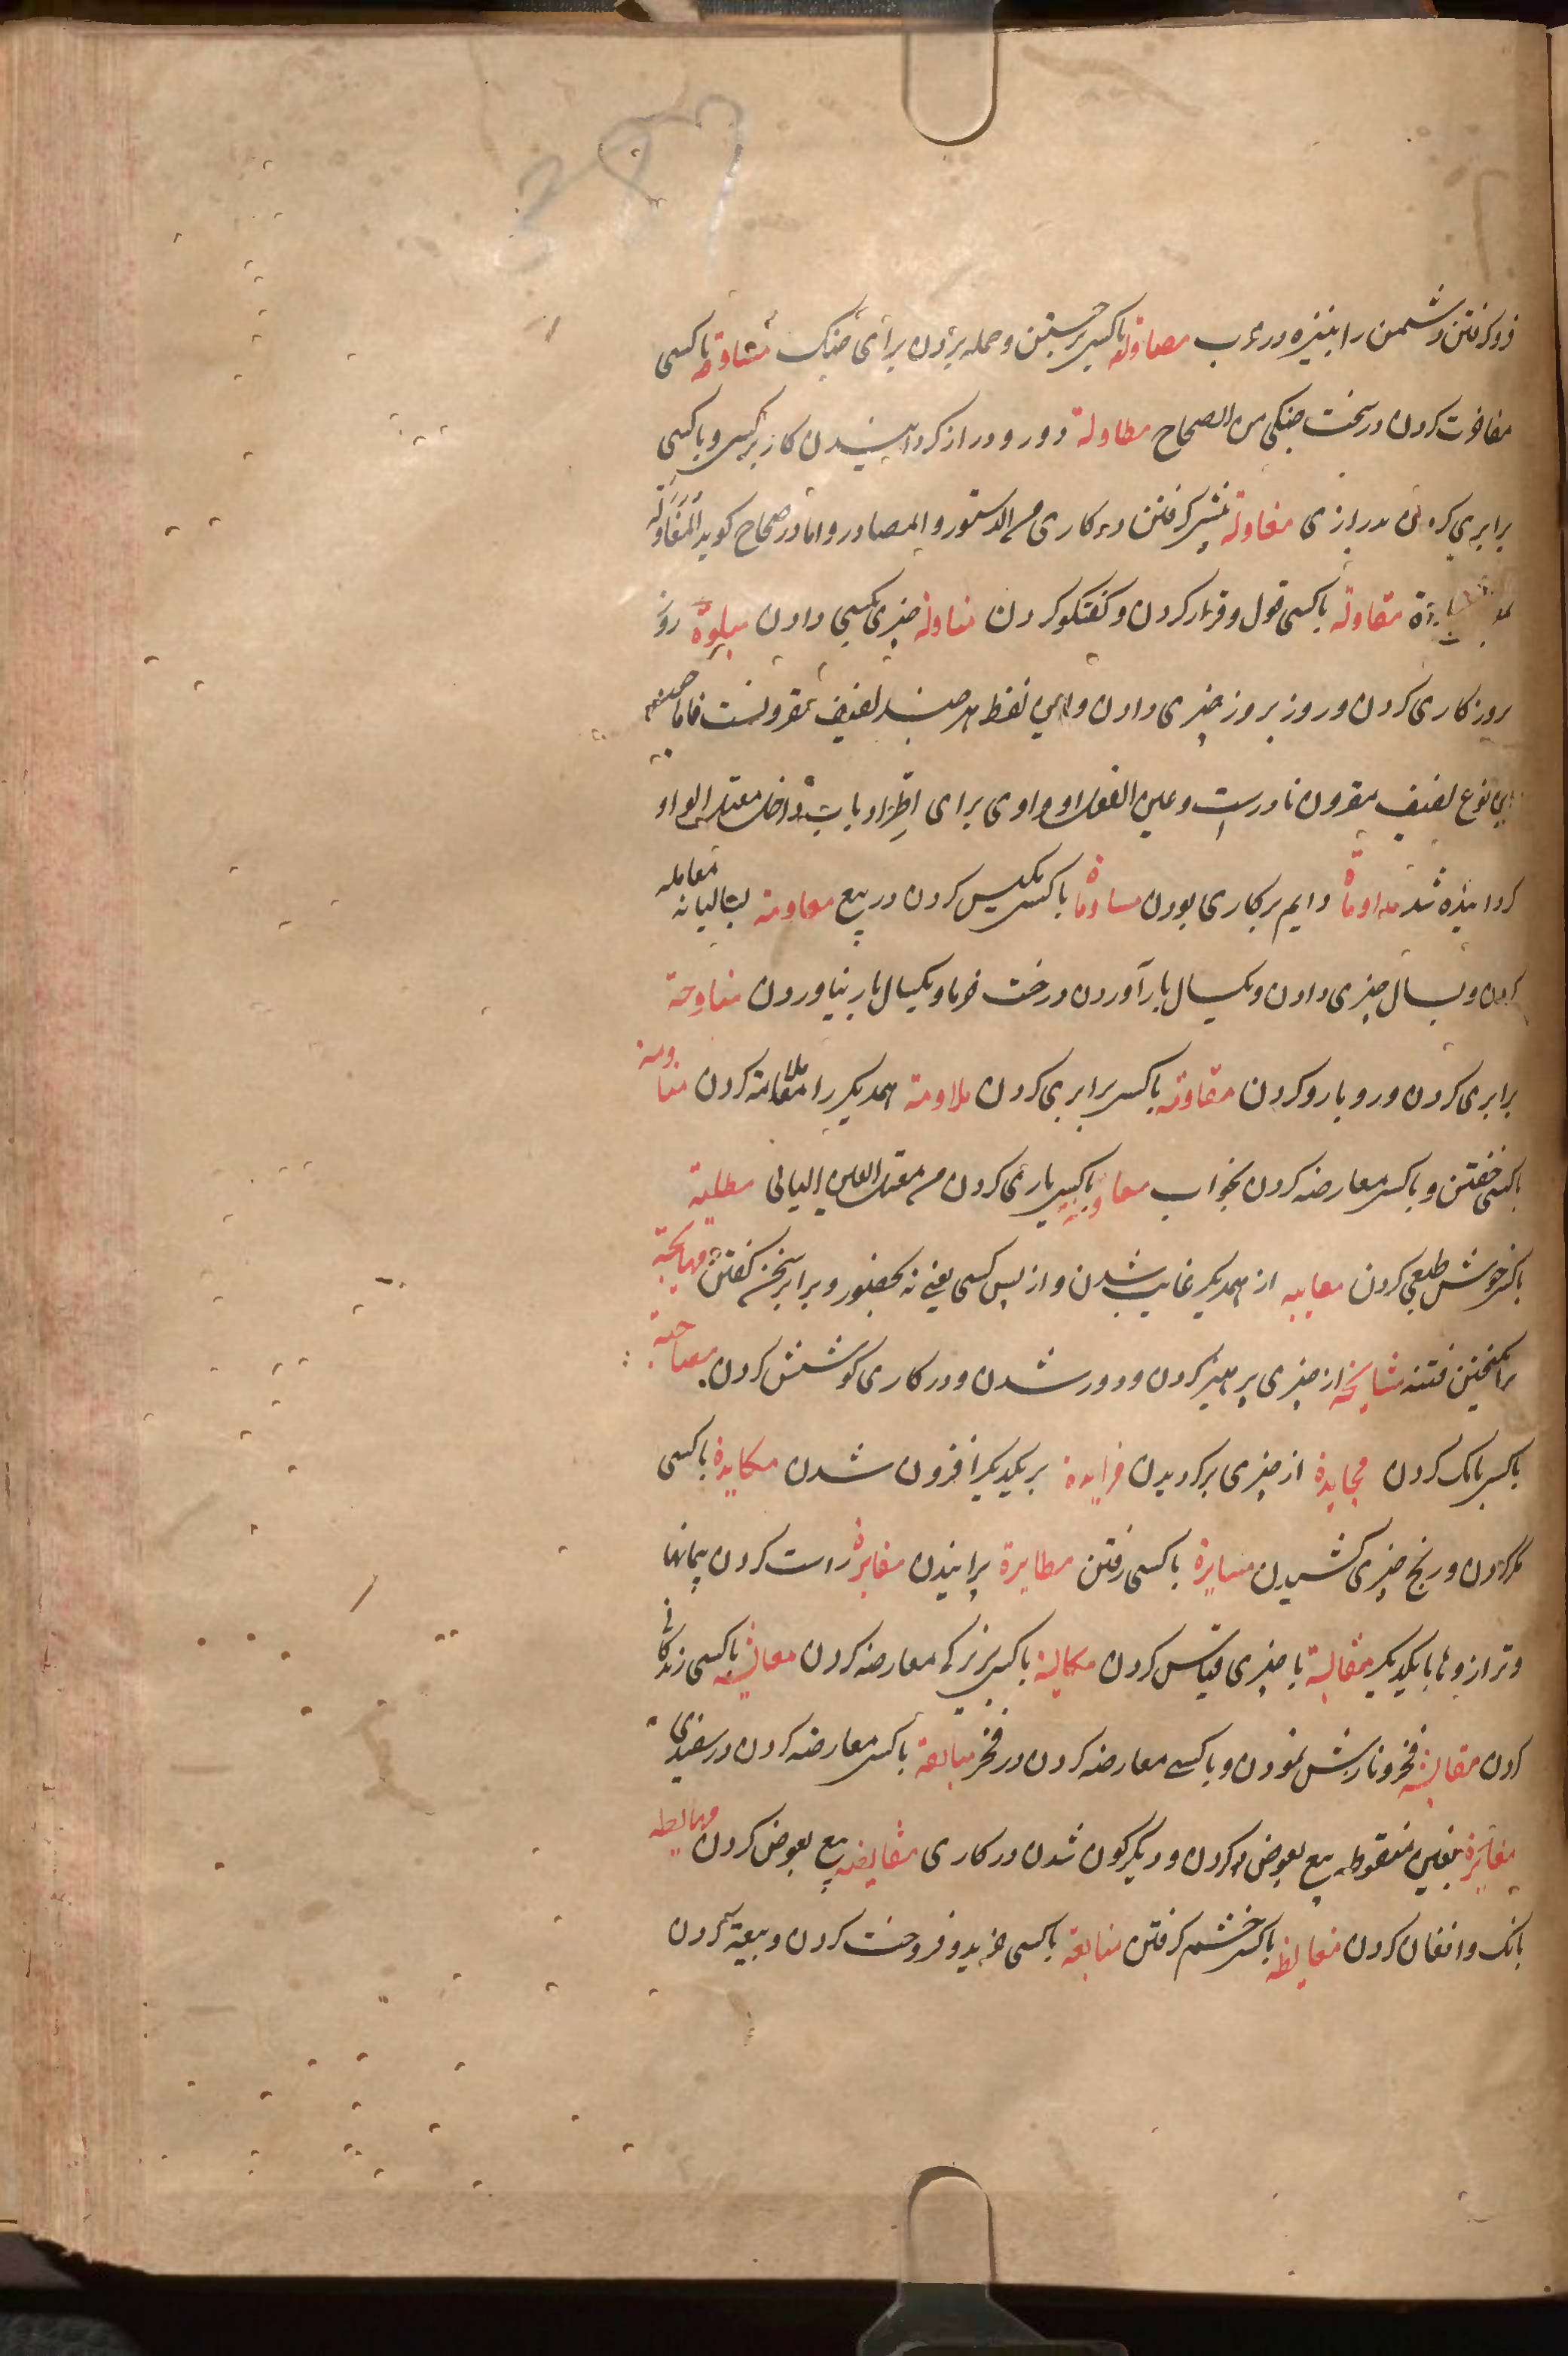 فرو گرفتن دشمن را بنیزه در حرب مصاولة باکسی برجستن و حمله بردن برای جنگ مشاوقة باکسی
مفاخرت کردن در سخت جنگی من الصحاح مطاولة دور و دراز گردانیدن کار بر کسی و باکسی
برابری کردن بدرازی مغاولة پیشی گرفتن در کاری من الدستور و المصادر و اما در صحاح گوید المغاولة
مقاولة باکسی قول و قرار کردن و گفتگو کردن مناولة چیزی بکسی دادن میاومة روز
بروز کاری کردن و روز بروز چیزی دادن و این لفظ هر چند لفیف مقرونست فاما چون
این نوع لفیف مقرون نادرست و عین الفعل او واوی برای اطراد باب داخل معتل الواو
گردانیده شد مداومة دایم بر کاری بودن مساومة باکسی مکیس کردن در بیع معاومة بسالیانه معامله
کردن و بسال چیزی دادن و یکسال بار آوردن درخت خرما و یکسال بار نیاوردن مناوحة
برابری کردن و روبارو کردن مقاومة باکسی برابری کردن ملاومة همدیگر را ملامت کردن مناومة
باکسی خفتن و باکسی معارضه کردن بخواب معاونة باکسی یاری کردن من معتل العین الیائی مطایبة
باکسی خوش طبعی کردن مغایبه از همدیگر غایب شدن و از پس کسی یعنی نه بحضور و برابر سخن گفتن مهایجة
برانگیختن فتنه مشایحة از چیزی پرهیز کردن و دور شدن و در کاری کوشش کردن مصایحة
باکسی بانگ کردن محایدة از چیزی برگردیدن مزایدة بر یکدیگر افزون شدن مکایدة باکسی
مکر کردن و رنج چیزی کشیدن مسایرة باکسی رفتن مطایرة پرانیدن معایرة راست کردن پیمانها
و ترازوها با یکدیگر مقایسة با چیزی قیاس کردن مکایسة باکسی بزیرکی معارضه کردن معایشة باکسی زندگانی
کردن مفایشة فخر و نازش نمودن و باکسی معارضه کردن در فخر مبایضة باکسی معارضه کردن در سفیدی
مغایرة بغین منقوطه بیع بعوض کردن و دیگرگون شدن در کاری مقایضه بیع بعوض کردن مهایطه
بانگ و افغان کردن مغایظه باکسی خشم گرفتن مبایعة باکسی خرید و فروخت کردن و بیعت کردن